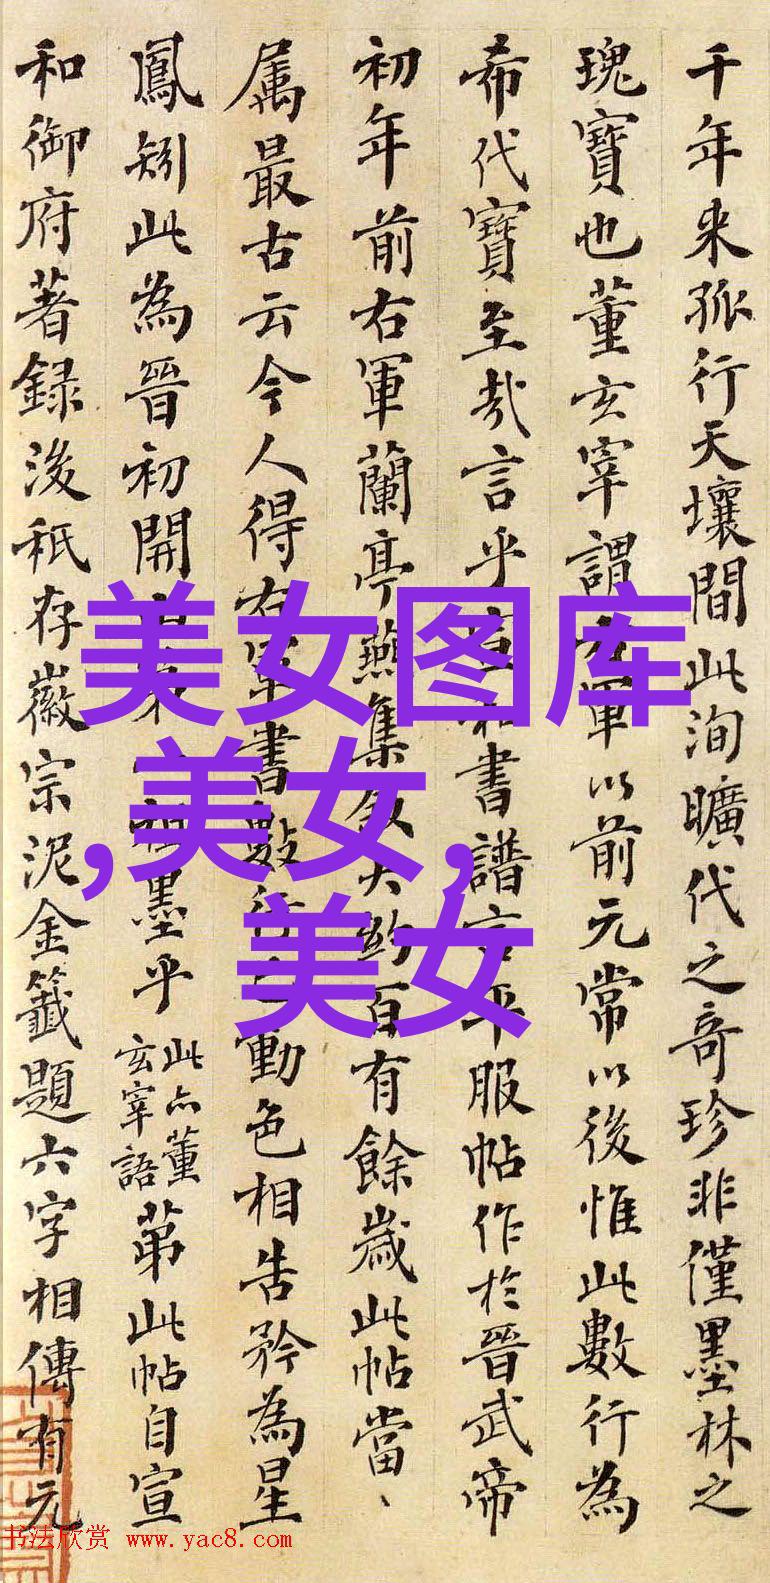 千年来孤行天壤間此洵曠代之奇珍非僅墨林之
瑰寶也董玄宰謂右軍以前元常以後惟此數行為
希代寶至哉言乎宣和書譜言平服帖作於晉武帝
初年前右軍蘭亭燕集敘大約百有餘歲此帖當、
属最古云今人得右軍書數行已動色相告矜為星
鳳矧此為晉初開祖墨乎此亦董玄宰語苐此帖自宣
和御府著録後秖存徽宗泥金籤題六字相傳有元
美女图库
,美女,
美女
书法欣赏 www.yac8.com